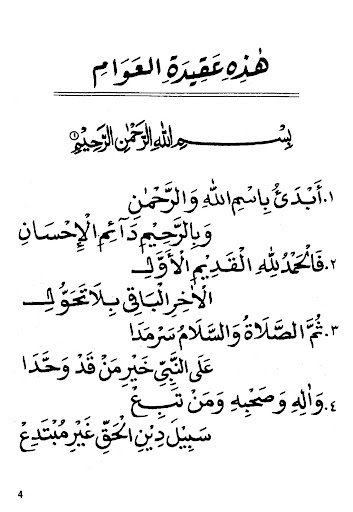 هٰذِهِ عَقِيدَةُ الْعَوَامِ
بِسْمِ اللهِ الرَّحْمٰنِ الرَّحِيْمِ
١. أَبْدَئُ بِاسْمِ اللهِ وَالرَّحْمٰنِ
وَبِالرَّحِيْمِ دَآئِمِ الْإِحْسَانِ
٢. فَالْحَمْدُ لِلّٰهِ الْقَدِيْمِ الْأَوَّلِ
الْاٰخِرِ الْبَاقِي بِلَا تَحَوُّلِ
٣. ثُمَّ الصَّلَاةُ وَالسَّلَامُ سَرْمَدَا
عَلَى النَّبِيِّ خَيْرِ مَنْ قَدْ وَحَّدَا
٤. وَاٰلِهِ وَصَحْبِهِ وَمَنْ تَبِعْ
سَبِيْلَ دِيْنِ الْحَقِّ غَيْرَ مُبْتَدِعْ
4